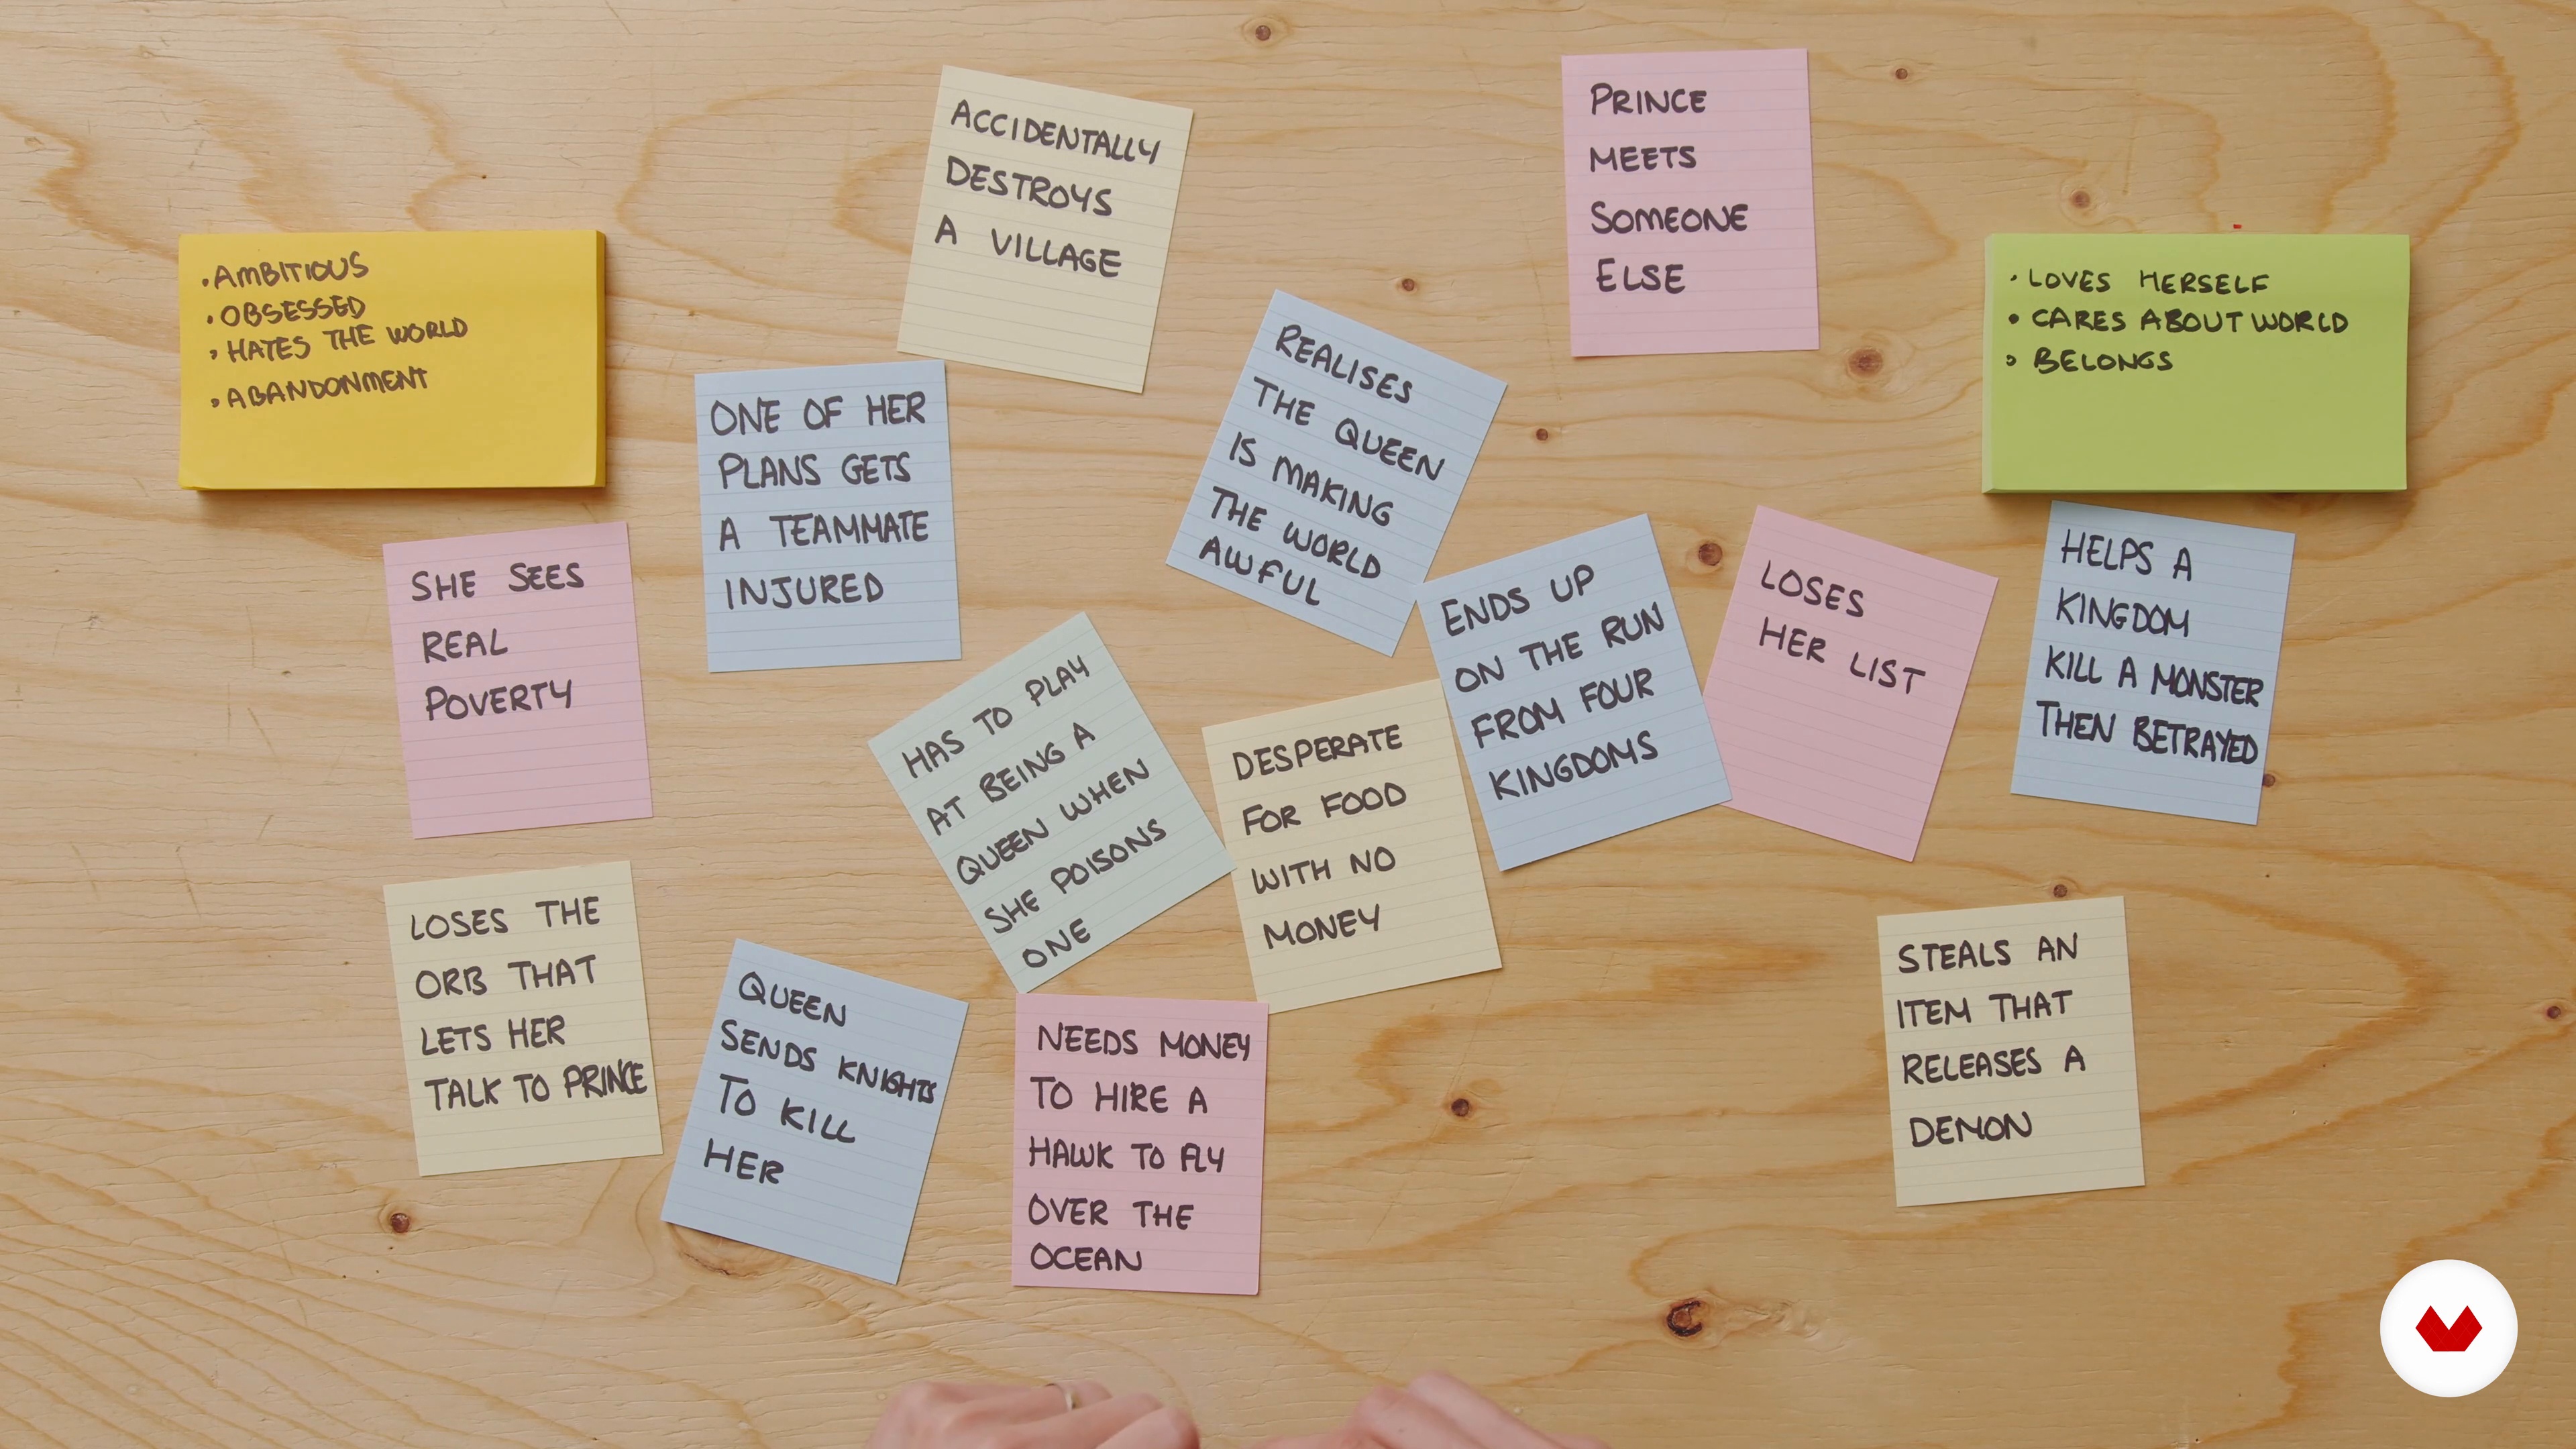 ACCIDENTALLY
DESTROYS
A VILLAGE
PRINCE
MEETS
SOMEONE
ELSE
• AMBITIOUS
• OBSESSED
• HATES THE WORLD
• ABANDONMENT
• LOVES HERSELF
• CARES ABOUT WORLD
• BELONGS
ONE OF HER
PLANS GETS
A TEAMMATE
INJURED
REALISES
THE QUEEN
IS MAKING
THE WORLD
AWFUL
SHE SEES
REAL
POVERTY
HAS TO PLAY
AT BEING A
QUEEN WHEN
SHE POISONS
ONE
DESPERATE
FOR FOOD
WITH NO
MONEY
ENDS UP
ON THE RUN
FROM FOUR
KINGDOMS
LOSES
HER LIST
HELPS A
KINGDOM
KILL A MONSTER
THEN BETRAYED
LOSES THE
ORB THAT
LETS HER
TALK TO PRINCE
QUEEN
SENDS KNIGHTS
TO KILL
HER
NEEDS MONEY
TO HIRE A
HAWK TO FLY
OVER THE
OCEAN
STEALS AN
ITEM THAT
RELEASES A
DEMON